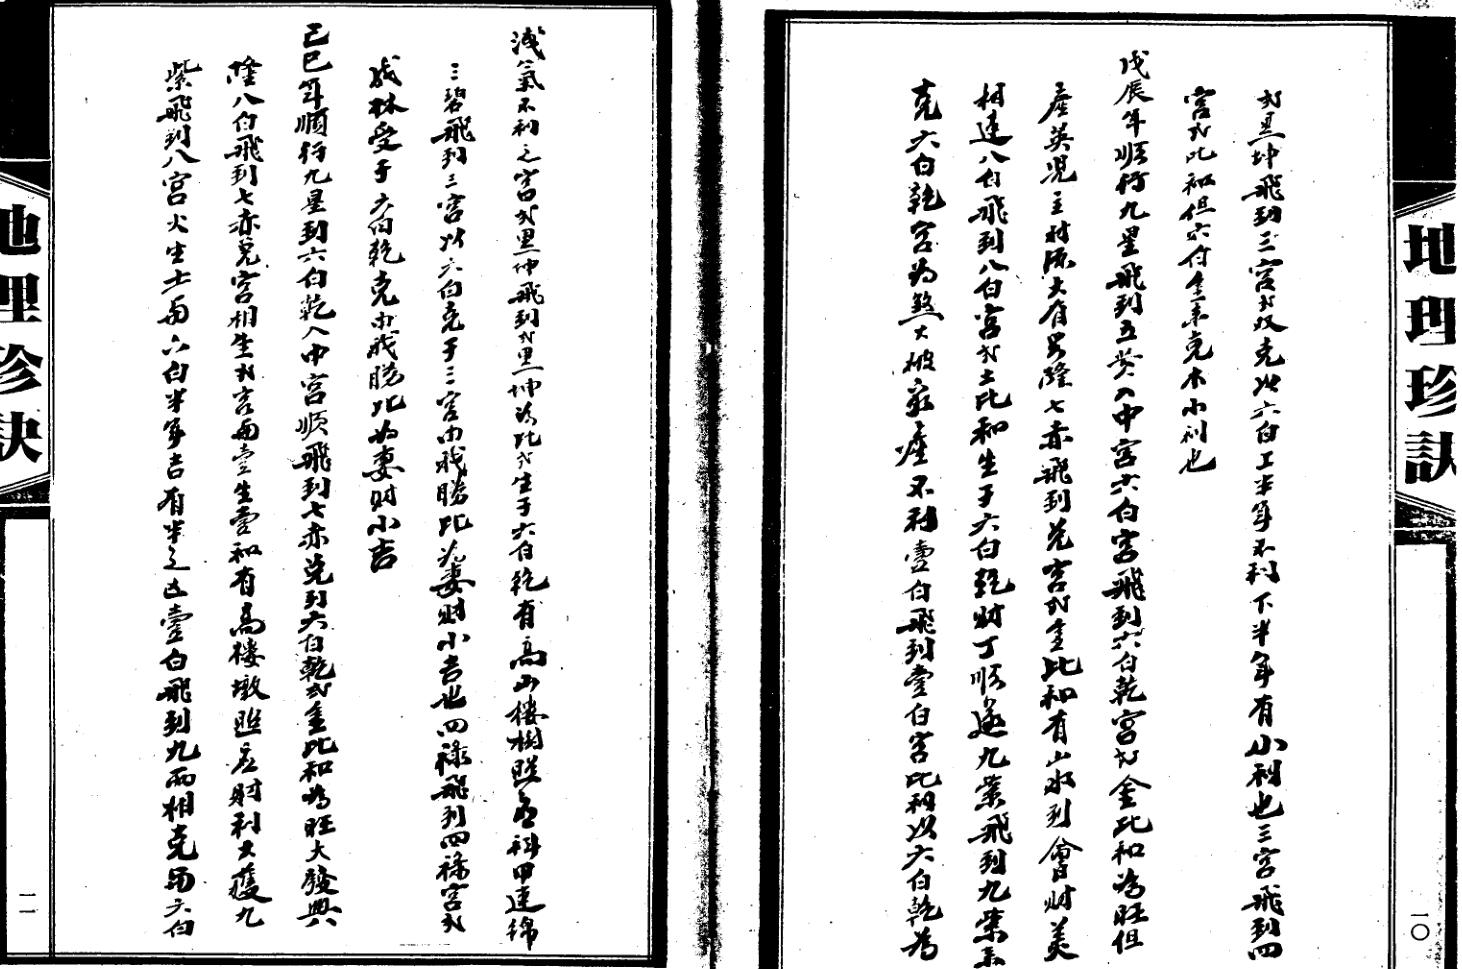 地理珍訣
一〇
黑坤飛到三宮双克此六白工半年不利下半年有小利也三宮飛到四
宮比和但六白金來克木小利也
戊辰年順行九星飛到五黄入中宮六白宮飛到六白乾宮金比和為旺但
產英児主財源大有興隆七赤飛到兑宮金比和有山水到會財美
相連八白飛到八白宮土比和生于六白乾財丁順遂九紫飛到九紫系
克六白乾宮為煞大破家產不利壹白飛到壹白宮比和以六白乾為
洩氣不利之宮黑坤飛到黑坤為比生于六白乾有高山樓樹照應科甲連綿
三碧飛到三宮以六白克于三宮由我勝比為妻財小吉也四祿飛到四祿宮
我林受于六白乾克由我勝比為妻財小吉
己巳年順行九星到六白乾入中宮順飛到七赤兑到六白乾金比和為旺大發興
隆八白飛到七赤兑宮相生宮由壹生壹和有高樓墩照应財利大獲九
紫飛到八宮火生土由六白半年吉有半之凶壹白飛到九兩相克由六白
地理珍訣
一一